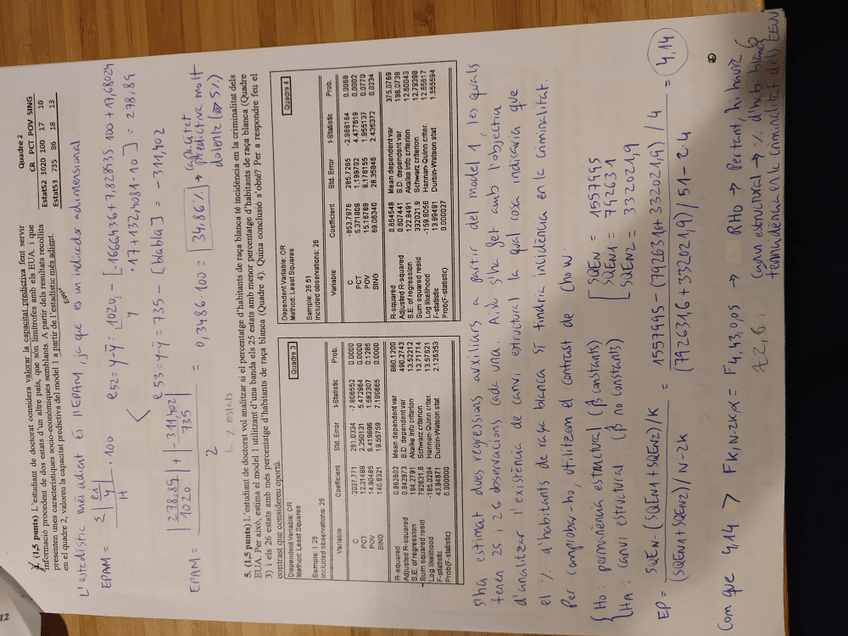 12
4. (1,5 punts) L'estudiant de doctorat considera valorar la capacitat predictiva fent servir
informació procedent de dos estats d'un altre país, que són limítrofes amb els EUA, i que
presenten unes característiques socio-econòmiques semblants. A partir dels resultats recollits
en el quadre 2, valoreu la capacitat predictiva del model 1 a partir de l'estadístic més adient.
Quadre 2
CR PCT POV SING
Estat52 1020 100 17 10
Estat53 735 86 18 13
L'estadístic més adient és l'EPAM, ja que és un indicador adimensional
EPAM = Σ|e/y| / H · 100
e52 = y - ŷ = 1020 - [-1666,436 + 7,828935 · 100 + 17,68024
· 17 + 132,4081 · 10] = 278,89
e53 = y - ŷ = 735 - [blabla] = -311,402
EPAM = |278,89 / 1020| + |-311,402 / 735| / 2 = 0,3486 · 100 = 34,86% → capacitat predictiva molt dolenta (> 5%)
2 estats
5. (1,5 punts) L'estudiant de doctorat vol analitzar si el percentatge d'habitants de raça blanca té incidència en la criminalitat dels
EUA. Per això, estima el model 1 utilitzant d'una banda els 25 estats amb menor percentatge d'habitants de raça blanca (Quadre
3) i els 26 estats amb més percentatge d'habitants de raça blanca (Quadre 4). Quina conclusió s'obté? Per a respondre feu el
contrast que considereu oportú.
Quadre 3
Dependent Variable: CR
Method: Least Squares
Sample: 1 25
Included observations: 25
Variable Coefficient Std. Error t-Statistic Prob.
C -2037.771 261.0334 -7.806552 0.0000
PCT 12.31469 2.250131 5.472864 0.0000
POV 14.90485 9.419696 1.582307 0.1285
SING 140.6321 19.55769 7.190665 0.0000
R-squared 0.862602 Mean dependent var 860.1200
Adjusted R-squared 0.842973 S.D. dependent var 490.2743
S.E. of regression 194.2791 Akaike info criterion 13.52212
Sum squared resid 792631.6 Schwarz criterion 13.71714
Log likelihood -165.0264 Hannan-Quinn criter. 13.57621
F-statistic 43.94671 Durbin-Watson stat 2.128353
Prob(F-statistic) 0.000000
Quadre 4
Dependent Variable: CR
Method: Least Squares
Sample: 26 51
Included observations: 26
Variable Coefficient Std. Error t-Statistic Prob.
C -853.7976 285.7265 -2.988164 0.0068
PCT 5.371809 1.199702 4.477619 0.0002
POV 15.18789 8.178155 1.855137 0.0770
SING 69.06340 28.35848 2.435372 0.0234
R-squared 0.654548 Mean dependent var 375.0769
Adjusted R-squared 0.607441 S.D. dependent var 196.0739
S.E. of regression 122.8491 Akaike info criterion 12.60043
Sum squared resid 332021.9 Schwarz criterion 12.79398
Log likelihood -159.8056 Hannan-Quinn criter. 12.65617
F-statistic 13.89491 Durbin-Watson stat 1.555594
Prob(F-statistic) 0.000027
S'ha estimat dues regressions auxiliars a partir del model 1, les quals
tenen 25 i 26 observacions cada una. Això s'ha fet amb l'objectiu
d'analitzar l'existència de canvi estructural la qual cosa indicaria que
el % d'habitants de raça blanca SÍ tindria incidència en la criminalitat.
Per comprobar-ho, utilitzem el contrast de Chow.
H0: permanència estructural (β constants)
HA: canvi estructural (β no constants)
SQEN = 1557995
SQEN1 = 792631
SQEN2 = 332021,9
EP = SQEN - (SQEN1 + SQEN2) / K / (SQEN1 + SQEN2) / N - 2K = 1557995 - (792631,6 + 332021,9) / 4 / (792631,6 + 332021,9) / 51 - 2·4 = 4,14
Com que 4,14 > FK,N-2K,α = F4,43,0,05 → RH0 → Per tant, hi haurà
≈2,61
canvi estructural → % d'hab blancs
té incidència en la criminalitat dels EEUU